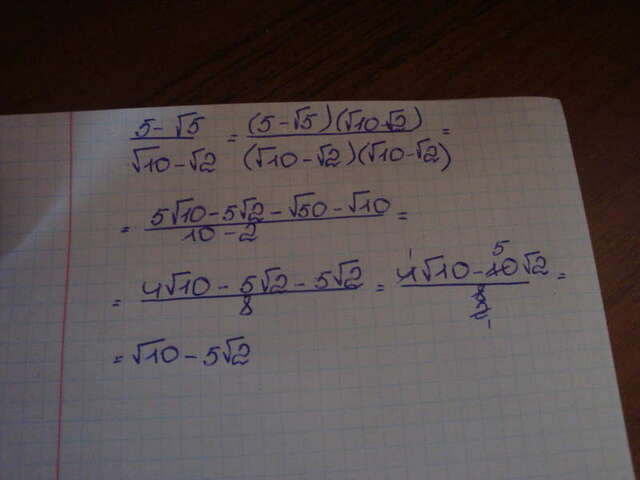 (5-√5)/(√10-√2) = ((5-√5)(√10 √2))/((√10-√2)(√10-√2)) =
= (5√10-5√2-√50-√10)/(10-2) =
= (4√10-5√2-5√2)/8 = (4√10-10√2)/8 =
= √10-5√2